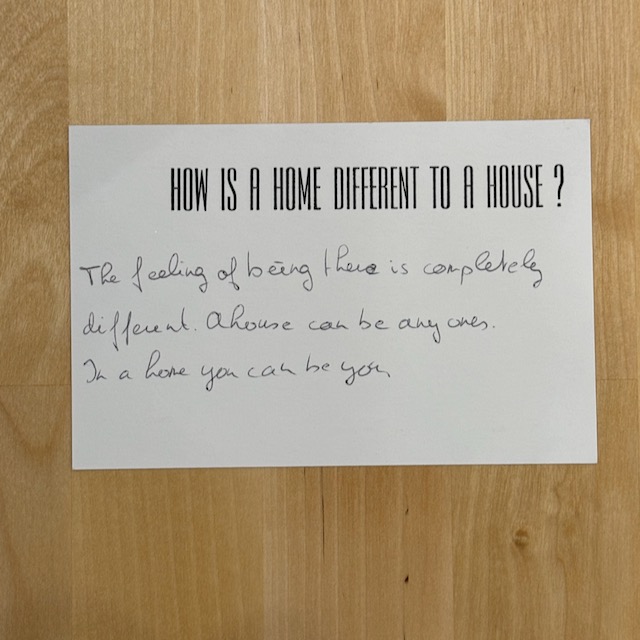 HOW IS A HOME DIFFERENT TO A HOUSE ?
The feeling of being there is completely
different. A house can be any ones.
In a home you can be you